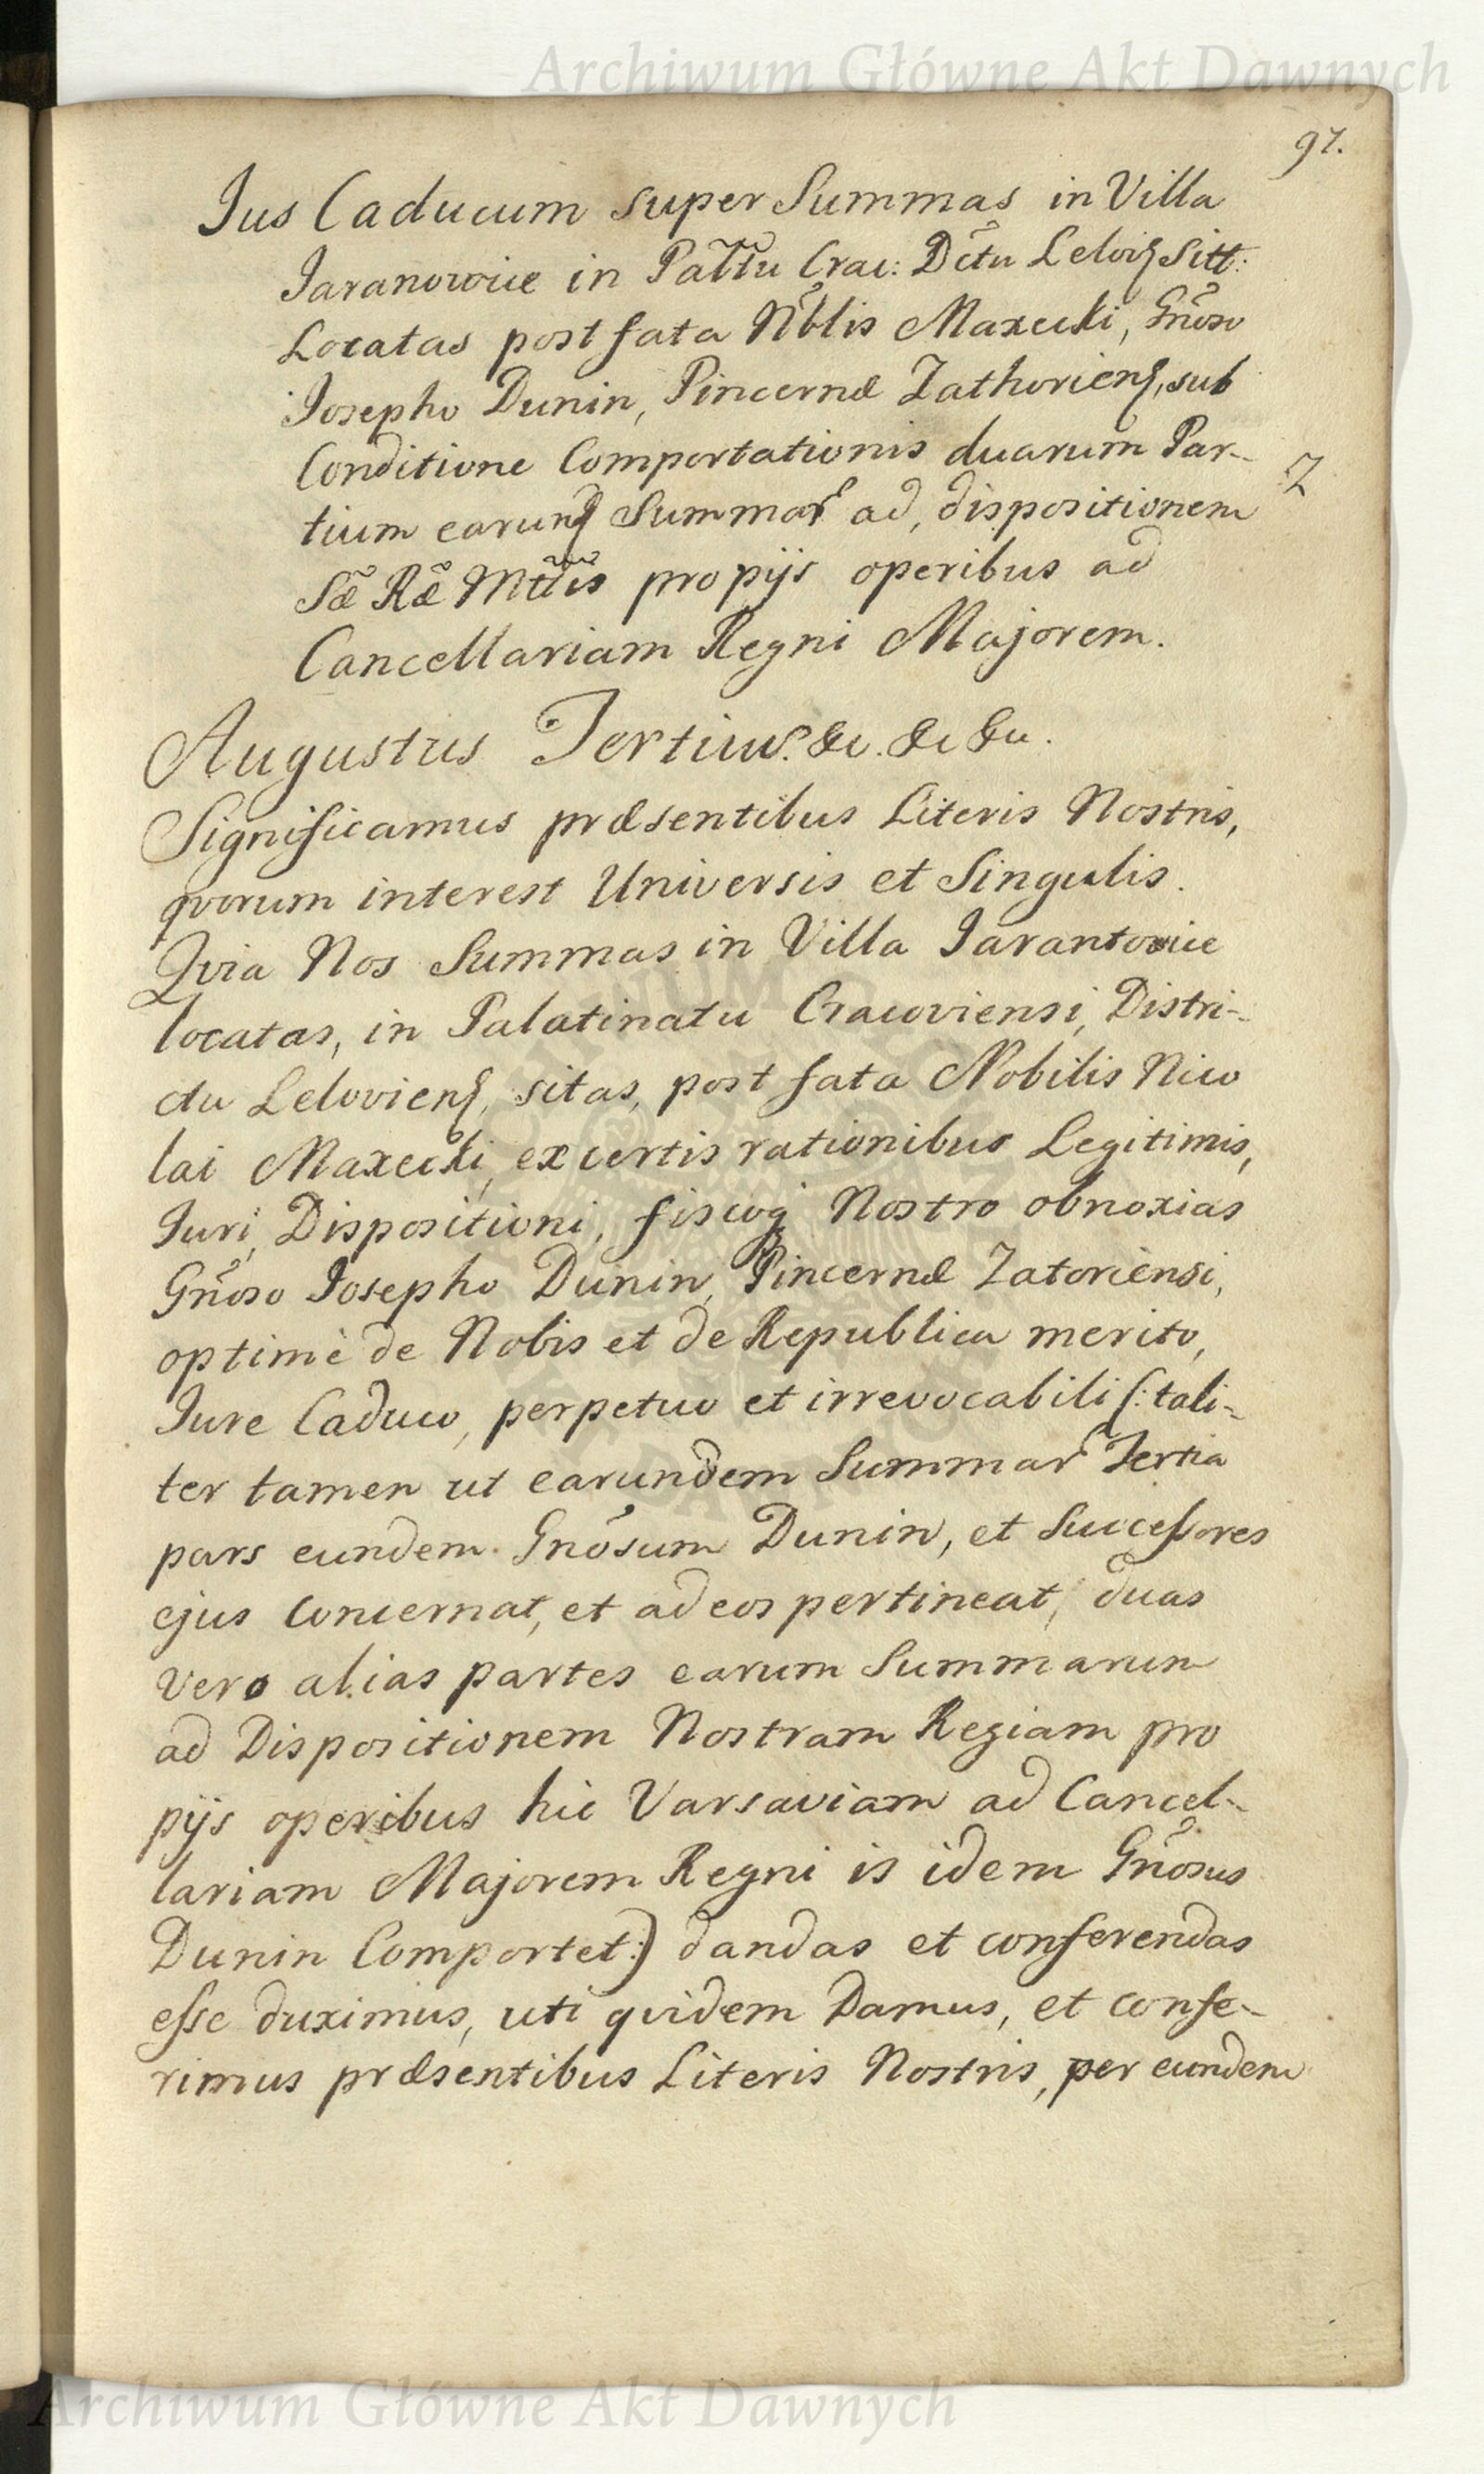 Archiwum Główne Akt Dawnych
97.
Jus Caducum super Summas in Villa
Jaranowice in Palltu Crac: Dctu Leloviẽ Sitt:
Locatas post fata Nõblis Maxecki, Gnõso
Josepho Dunin, Pincernæ Zathorien̄, sub
Conditione Comportationis duarum Par-
tium earund Summar ad, dispositionem
Sæ Ræ Mttis pro pijs operibus ad
Cancellariam Regni Majorem.
Augustus Tertius. &c. &c &c.
Significamus præsentibus Literis Nostris,
qvorum interest Universis et Singulis.
Qvia Nos Summas in Villa Jarantowice
locatas, in Palatinatu Cracoviensi, Distri-
ctu Lelovien̄, sitas, post fata Nobilis Nico
lai Maxecki, ex certis rationibus Legitimis,
Juri, Dispositioni, fiscoq Nostro obnoxias
Gnõso Josepho Dunin, Pincernæ Zatoriensi,
optimè de Nobis et de Republica merito,
Jure Caduco, perpetuo et irrevocabili (: tali-
ter tamen ut earundem Summar Tertia
pars eundem Gnõsum Dunin, et Successores
ejus concernat, et ad eos pertineat, duas
vero alias partes earum Summarum
ad Dispositionem Nostram Regiam pro
pijs operibus hic Varsaviam ad Cancel-
lariam Majorem Regni is idem Gnõsus
Dunin Comportet:) dandas et conferendas
esse duximus, uti qvidem Damus, et confe-
rimus præsentibus Literis Nostris, per eundem
Archiwum Główne Akt Dawnych